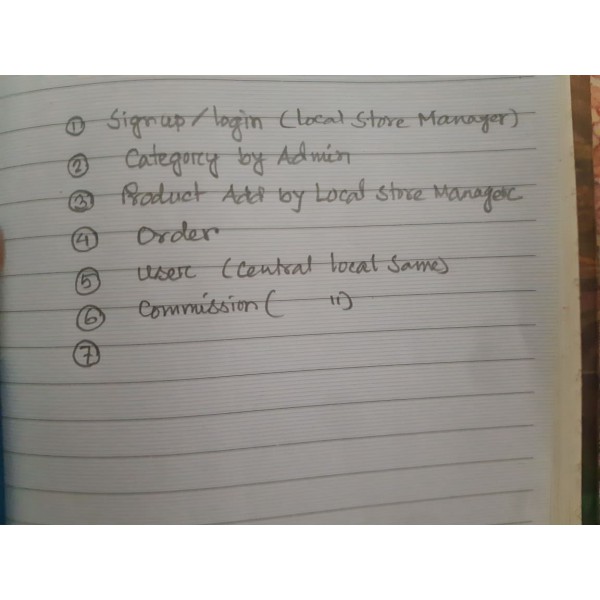 ① Signup/login (local Store Manager)
② Category by Admin
③ Product Add by Local Store Manager
④ Order
⑤ user (Central local Same)
⑥ Commission ( ")
⑦